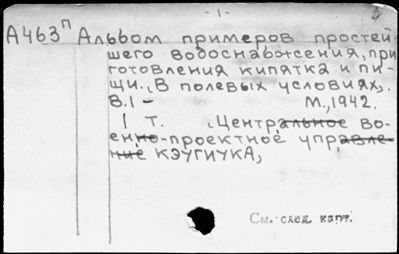 - 1 -
А463п Альбом примеров простей-
шего водоснабжения, при
готовления кипятка и пи-
щи. В полевых условиях.
В.1 - М., 1942.
1 т. Центральное во-
енно-проектное управле-
ние КЭУГИУКА,
См. след. карт.